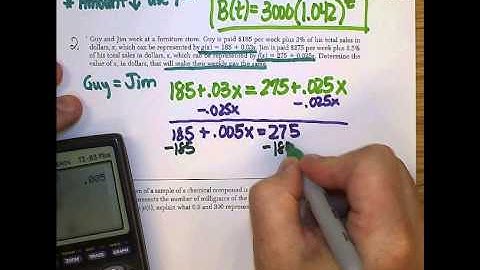 * Amount ↓ use
B(t) = 3000(1.042)
2. Guy and Jim work at a furniture store. Guy is paid $185 per week plus 3% of his total sales in
dollars, x, which can be represented by g(x) = 185 + 0.03x. Jim is paid $275 per week plus 2.5%
of his total sales in dollars, x, which can be represented by f(x) = 275 + 0.025x. Determine the
value of x, in dollars, that will make their weekly pay the same.
Guy = Jim
185 + .03x = 275 + .025x
-.025x -.025x
185 + .005x = 275
-185 -185
TI-83 Plus
.005
of a sample of a chemical compound is
represents the number of milligrams of the
explain what 0.5 and 300 represent